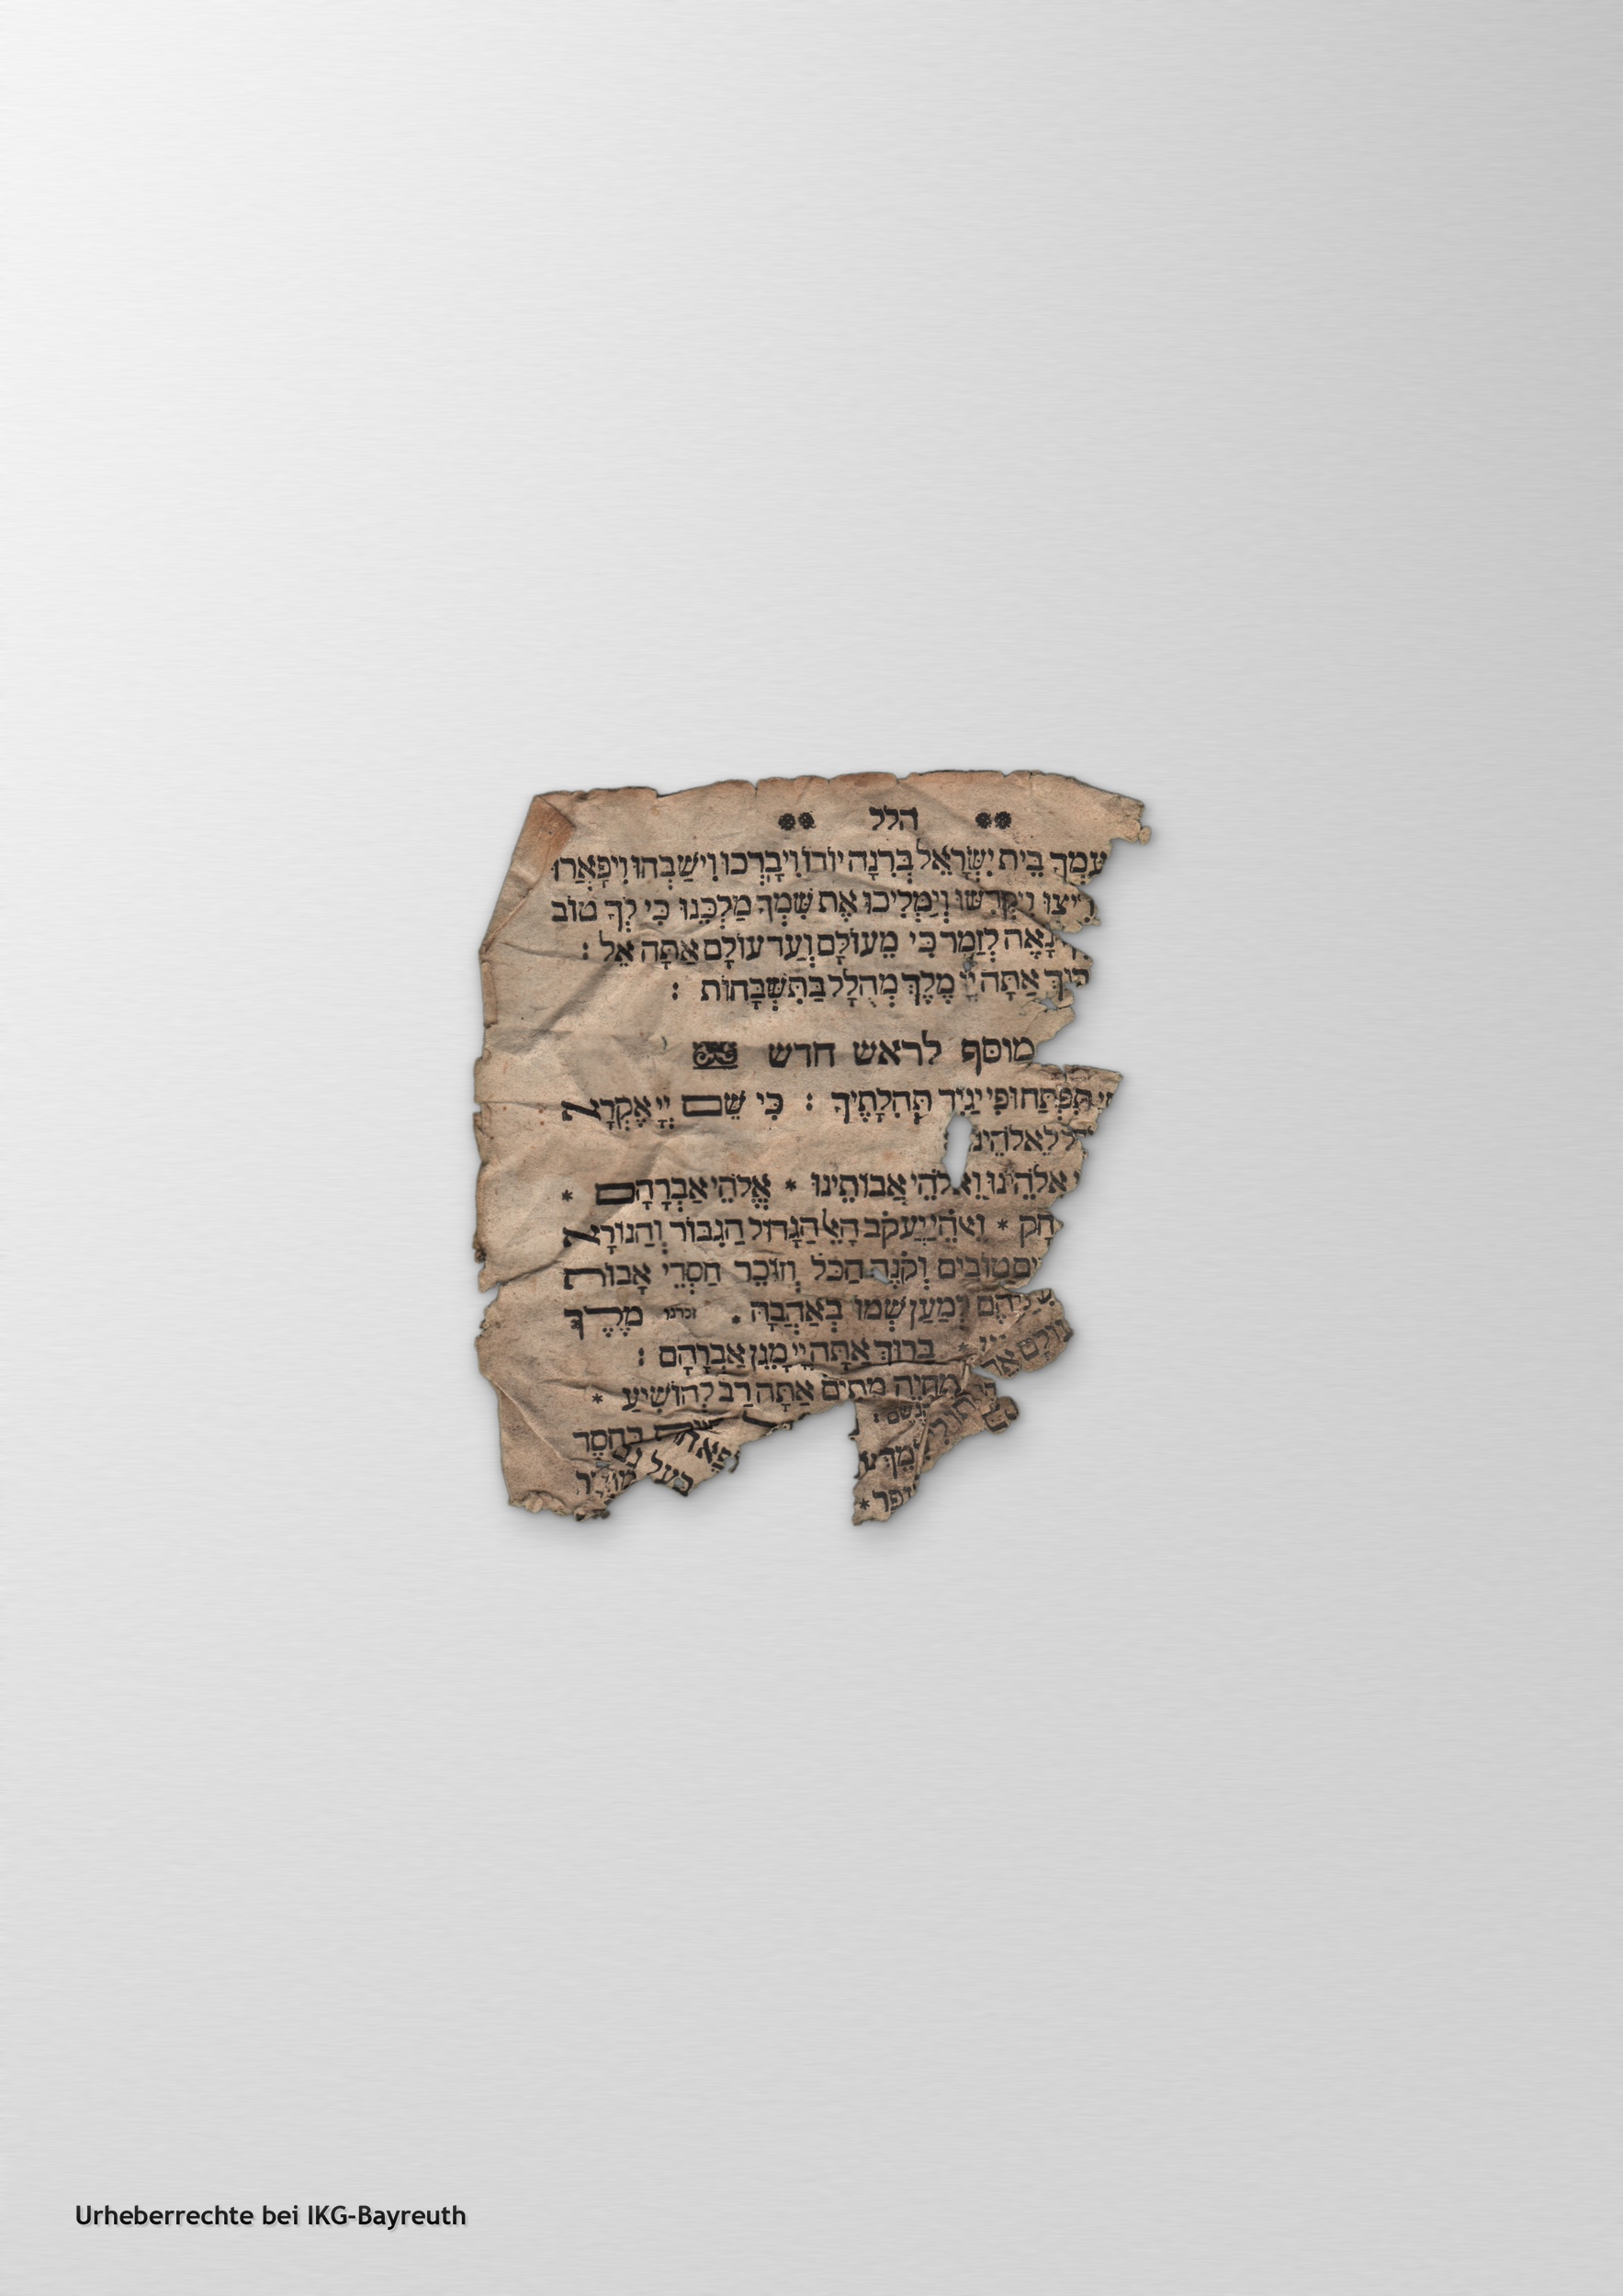 הלל
עַמְךָ בֵּית יִשְׂרָאֵל בְּרִנָּה יוֹדוּ וִיבָרְכוּ וִישַׁבְּחוּ וִיפָאֲרוּ
וְיַקְדִּישׁוּ וְיַמְלִיכוּ אֶת שִׁמְךָ מַלְכֵּנוּ כִּי לְךָ טוֹב
נָאֶה לְזַמֵּר כִּי מֵעוֹלָם וְעַד עוֹלָם אַתָּה אֵל :
אַתָּה יְיָ מֶלֶךְ מְהֻלָּל בַּתִּשְׁבָּחוֹת :
מוסף לראש חדש
תִּפְתָּח וּפִי יַגִּיד תְּהִלָּתֶיךָ : כִּי שֵׁם יְיָ אֶקְרָא
לֵאלֹהֵינ
אֱלֹהֵינוּ וֵאלֹהֵי אֲבוֹתֵינוּ * אֱלֹהֵי אַבְרָהָם *
חָק * וֵאלֹהֵי יַעֲקֹב הָאֵל הַגָּדוֹל הַגִּבּוֹר וְהַנּוֹרָא
ים טוֹבִים וְקֹנֵה הַכֹּל וְזוֹכֵר חַסְדֵי אָבוֹת
לְמַעַן שְׁמוֹ בְּאַהֲבָה . זכרנו מֶלֶךְ
בָּרוּךְ אַתָּה יְיָ מָגֵן אַבְרָהָם :
מְחַיֵּה מֵתִים אַתָּה רַב לְהוֹשִׁיעַ *
בְּחֶסֶד
Urheberrechte bei IKG-Bayreuth